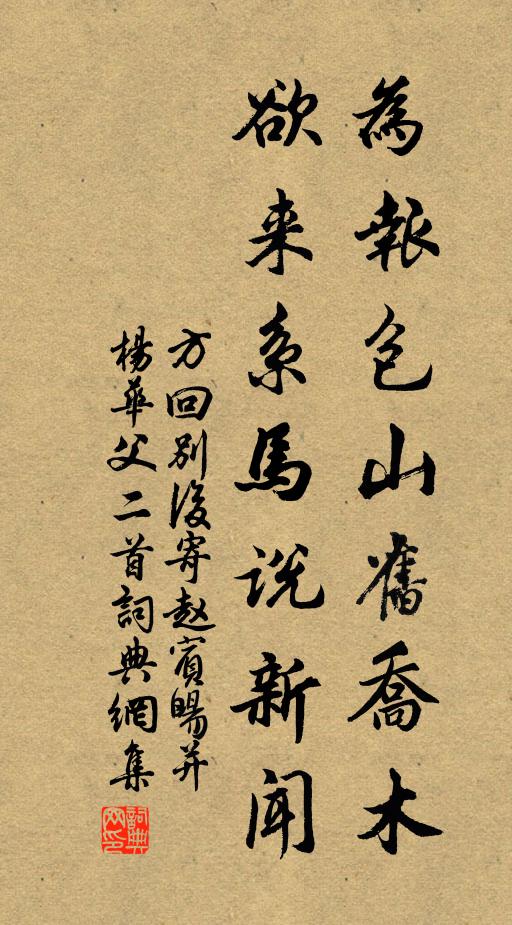 為報包山舊喬木
欲来系馬説新聞
方回別後寄赵賓暘并
楊華父二首詞典網集
詞典网印